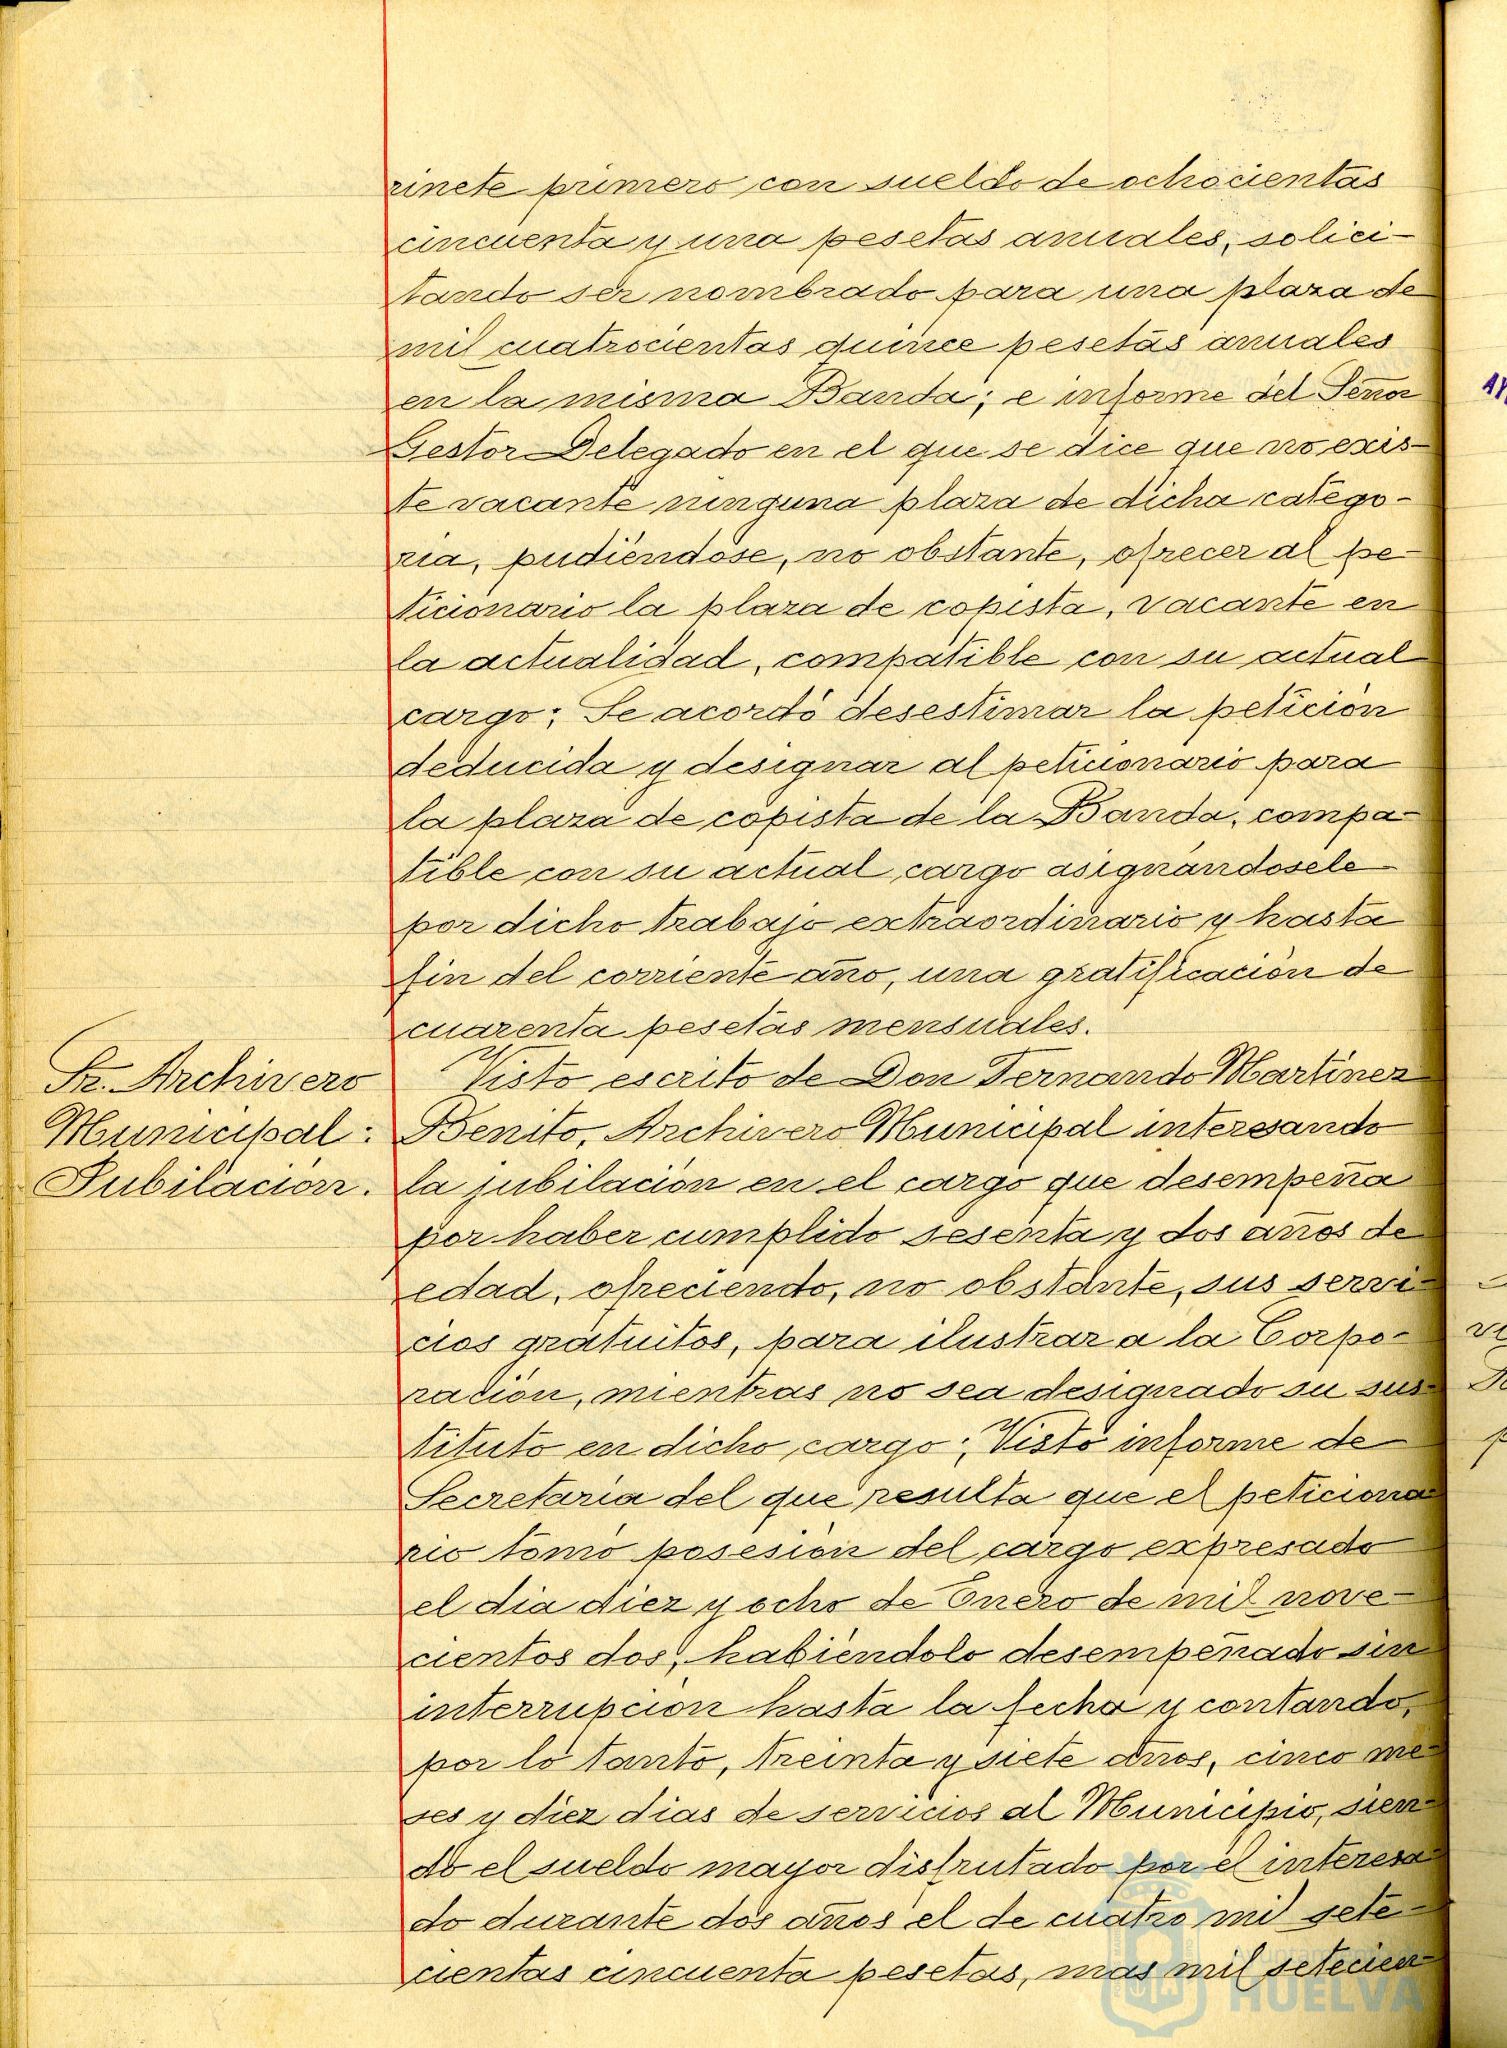 rinete primero con sueldo de ochocientas
cincuenta y una pesetas anuales, solici-
tando ser nombrado para una plaza de
mil cuatrocientas quince pesetas anuales
en la misma Banda; e informe del Señor
Gestor Delegado en el que se dice que no exis-
te vacante ninguna plaza de dicha catego-
ria, pudiéndose, no obstante, ofrecer al pe-
ticionario la plaza de copista, vacante en
la actualidad, compatible con su actual
cargo; Se acordó desestimar la petición
deducida y designar al peticionario para
la plaza de copista de la Banda, compa-
tible con su actual cargo asignándosele
por dicho trabajo extraordinario y hasta
fin del corriente año, una gratificación de
cuarenta pesetas mensuales.
Sr. Archivero
Municipal:
Jubilación.
Visto escrito de Don Fernando Martinez
Benito, Archivero Municipal interesando
la jubilación en el cargo que desempeña
por haber cumplido sesenta y dos años de
edad, ofreciendo, no obstante, sus servi-
cios gratuitos, para ilustrar a la Corpo-
ración, mientras no sea designado su sus-
tituto en dicho cargo; Visto informe de
Secretaría del que resulta que el peticiona-
rio tomó posesión del cargo expresado
el dia diez y ocho de Enero de mil nove-
cientos dos, habiéndolo desempeñado sin
interrupción hasta la fecha y contando,
por lo tanto, treinta y siete años, cinco me-
ses y diez dias de servicios al Municipio, sien-
do el sueldo mayor disfrutado por el interesa-
do durante dos años el de cuatro mil sete-
cientas cincuenta pesetas, mas mil setecien-
HUELVA